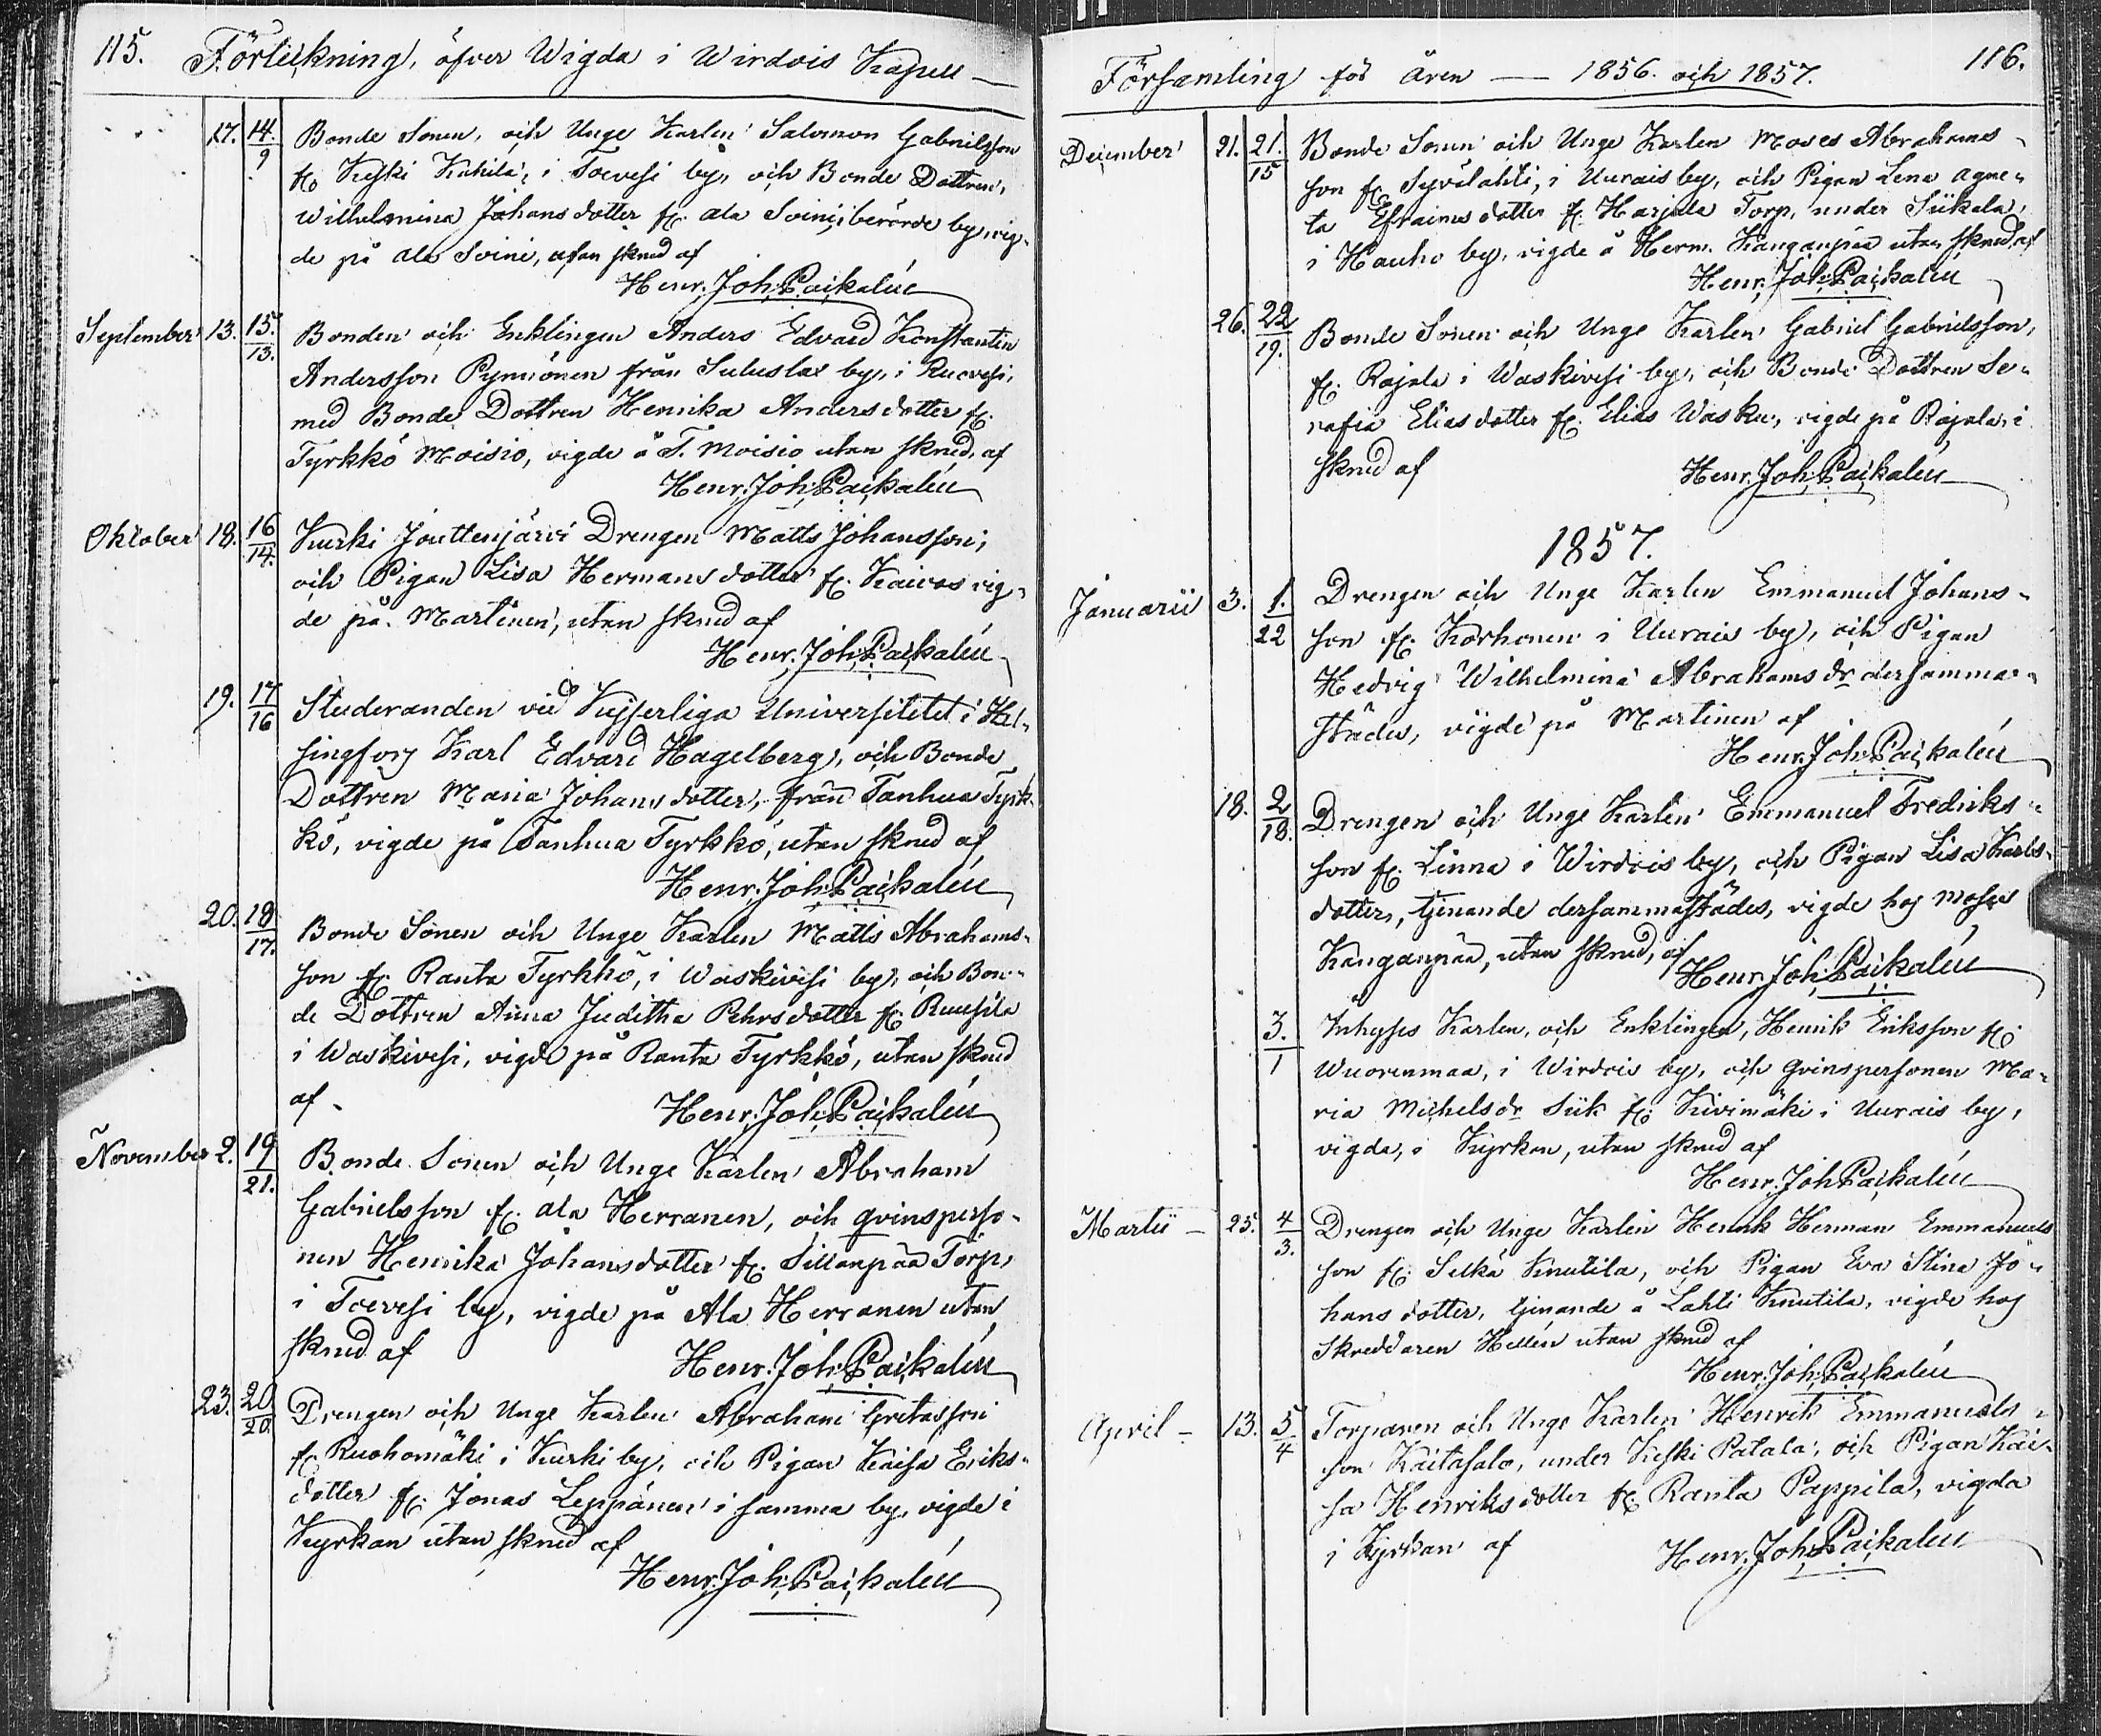 115. Förteckning, öfver Wigda i Wirdois Kapell —
27. 14./9 Bonde Sonen, och Unge Karlen Salomon Gabrielsson
fr. Keski Kahila, i Toevesi by, och Bonde Dottren,
Wilhelmina Johans dotter fr. Ala Soini, i berörde by, vig-
de på Ala Soini, utan skrud af
Henr. Joh. Paikalén
September 13. 15./13. Bonden och Enklingen Anders Edvard Konstantin
Andersson Pynnönen från by, i Ruovesi,
med Bonde Dottren Henrika Anders dotter fr.
Tyrkkö Moisio, vigde å T. Moisio utan skrud, af
Henr. Joh. Paikalén
Oktober 18. 16/14. Kurki Jouttenjärvi Drengen Matts Johansson,
och Pigan Lisa Hermans dotter fr. Kaivos vig-
de på Martinen, utan skrud af
Henr. Joh. Paikalén
19. 17/16 Studeranden vid Kejserliga Universitetet i Hel-
singfors Karl Edvard Hagelberg, och Bonde
Dottren Maria Johans dotter, från Tanhua Tyrk-
kö, vigde på Tanhua Tyrkkö, utan skrud af
Henr. Joh. Paikalén
20. 18/17. Bonde Sonen och Unge Karlen Matts Abrahams-
son fr. Ranta Tyrkkö, i Waskivesi by, och Bon-
de Dottren Anna Juditha Pehrs dotter fr. Ruusila
i Waskivesi, vigde på Ranta Tyrkkö, utan skrud
af
Henr. Joh. Paikalén
November 2. 19/21. Bonde Sonen och Unge Karlen Abraham
Gabrielsson fr. Ala Herranen, och qvinsperso-
nen Henrika Johansdotter fr. Sillanpää Torp,
i Toevesi by, vigde på Ala Herranen utan
skrud af Henr. Joh. Paikalén
23. 20./20. Drengen och Unge Karlen Abraham Gretasson
fr. Ruohomäki i Kurki by, och Pigan Kaisa Eriks-
dotter fr. Jonas Leppänen i samma by, vigde i
Kyrkan utan skrud af
Henr. Joh. Paikalén
Församling för Åren — 1856. och 1857. 116.
December 21. 21./15 Bonde Sonen och Unge Karlen Moses Abrahams-
son fr. Syvälahti, i Uurais by, och Pigan Lena Agne-
ta Efraims dotter fr. Harjula Torp, under Siikala,
i Hauho by, vigde å Herm. Kanganpää utan skrud, af
Henr. Joh. Paikalén
26. 22/19. Bonde Sonen och Unge Karlen Gabriel Gabrielsson,
fr. Rajala i Waskivesi by, och Bonde Dottren Se-
rafia Elias dotter fr. Elias Wasku, vigde på Rajala, i
skrud af Henr. Joh. Paikalén
1857.
Januarii 3. 1./22 Drengen och Unge Karlen Emmanuel Johans-
son fr. Korhonen i Uurais by, och Pigan
Hedvig Wilhelmina Abrahams dr dersamma-
städes, vigde på Martinen af
Henr. Joh. Paikalén
18. 2/18. Drengen och Unge Karlen Emmanuel Fredriks-
son fr. Linna i Wirdois by, och Pigan Lisa Karls-
dotter, tjenande dersammastädes, vigde hos Moses
Kanganpää, utan skrud, af
Henr. Joh. Paikalén
3./1 Inhyses Karlen, och Enklingen, Henrik Eriksson fr.
Wuorenmaa, i Wirdois by, och qvinspersonen Ma-
ria Michelsdr Siik fr. Kivimäki i Uurais by,
vigda, i Kyrkan, utan skrud af
Henr. Joh. Paikalén
Martii — 25. 4/3. Drengen och Unge Karlen Henrik Herman Emmanuels
son fr. Selkä Knutila, och Pigan Eva Stina Jo-
hans dotter, tjenande å Lahti Knutila, vigde hos
Skreddaren Hellén utan skrud af
Henr. Joh. Paikalén
April — 13. 5/4 Torparen och Unge Karlen Henrik Emmanuels-
son Kaitasalo, under Keski Patala, och Pigan Kai-
sa Henriks dotter fr. Ranta Pappila, vigda
i Kyrkan af Henr. Joh. Paikalén